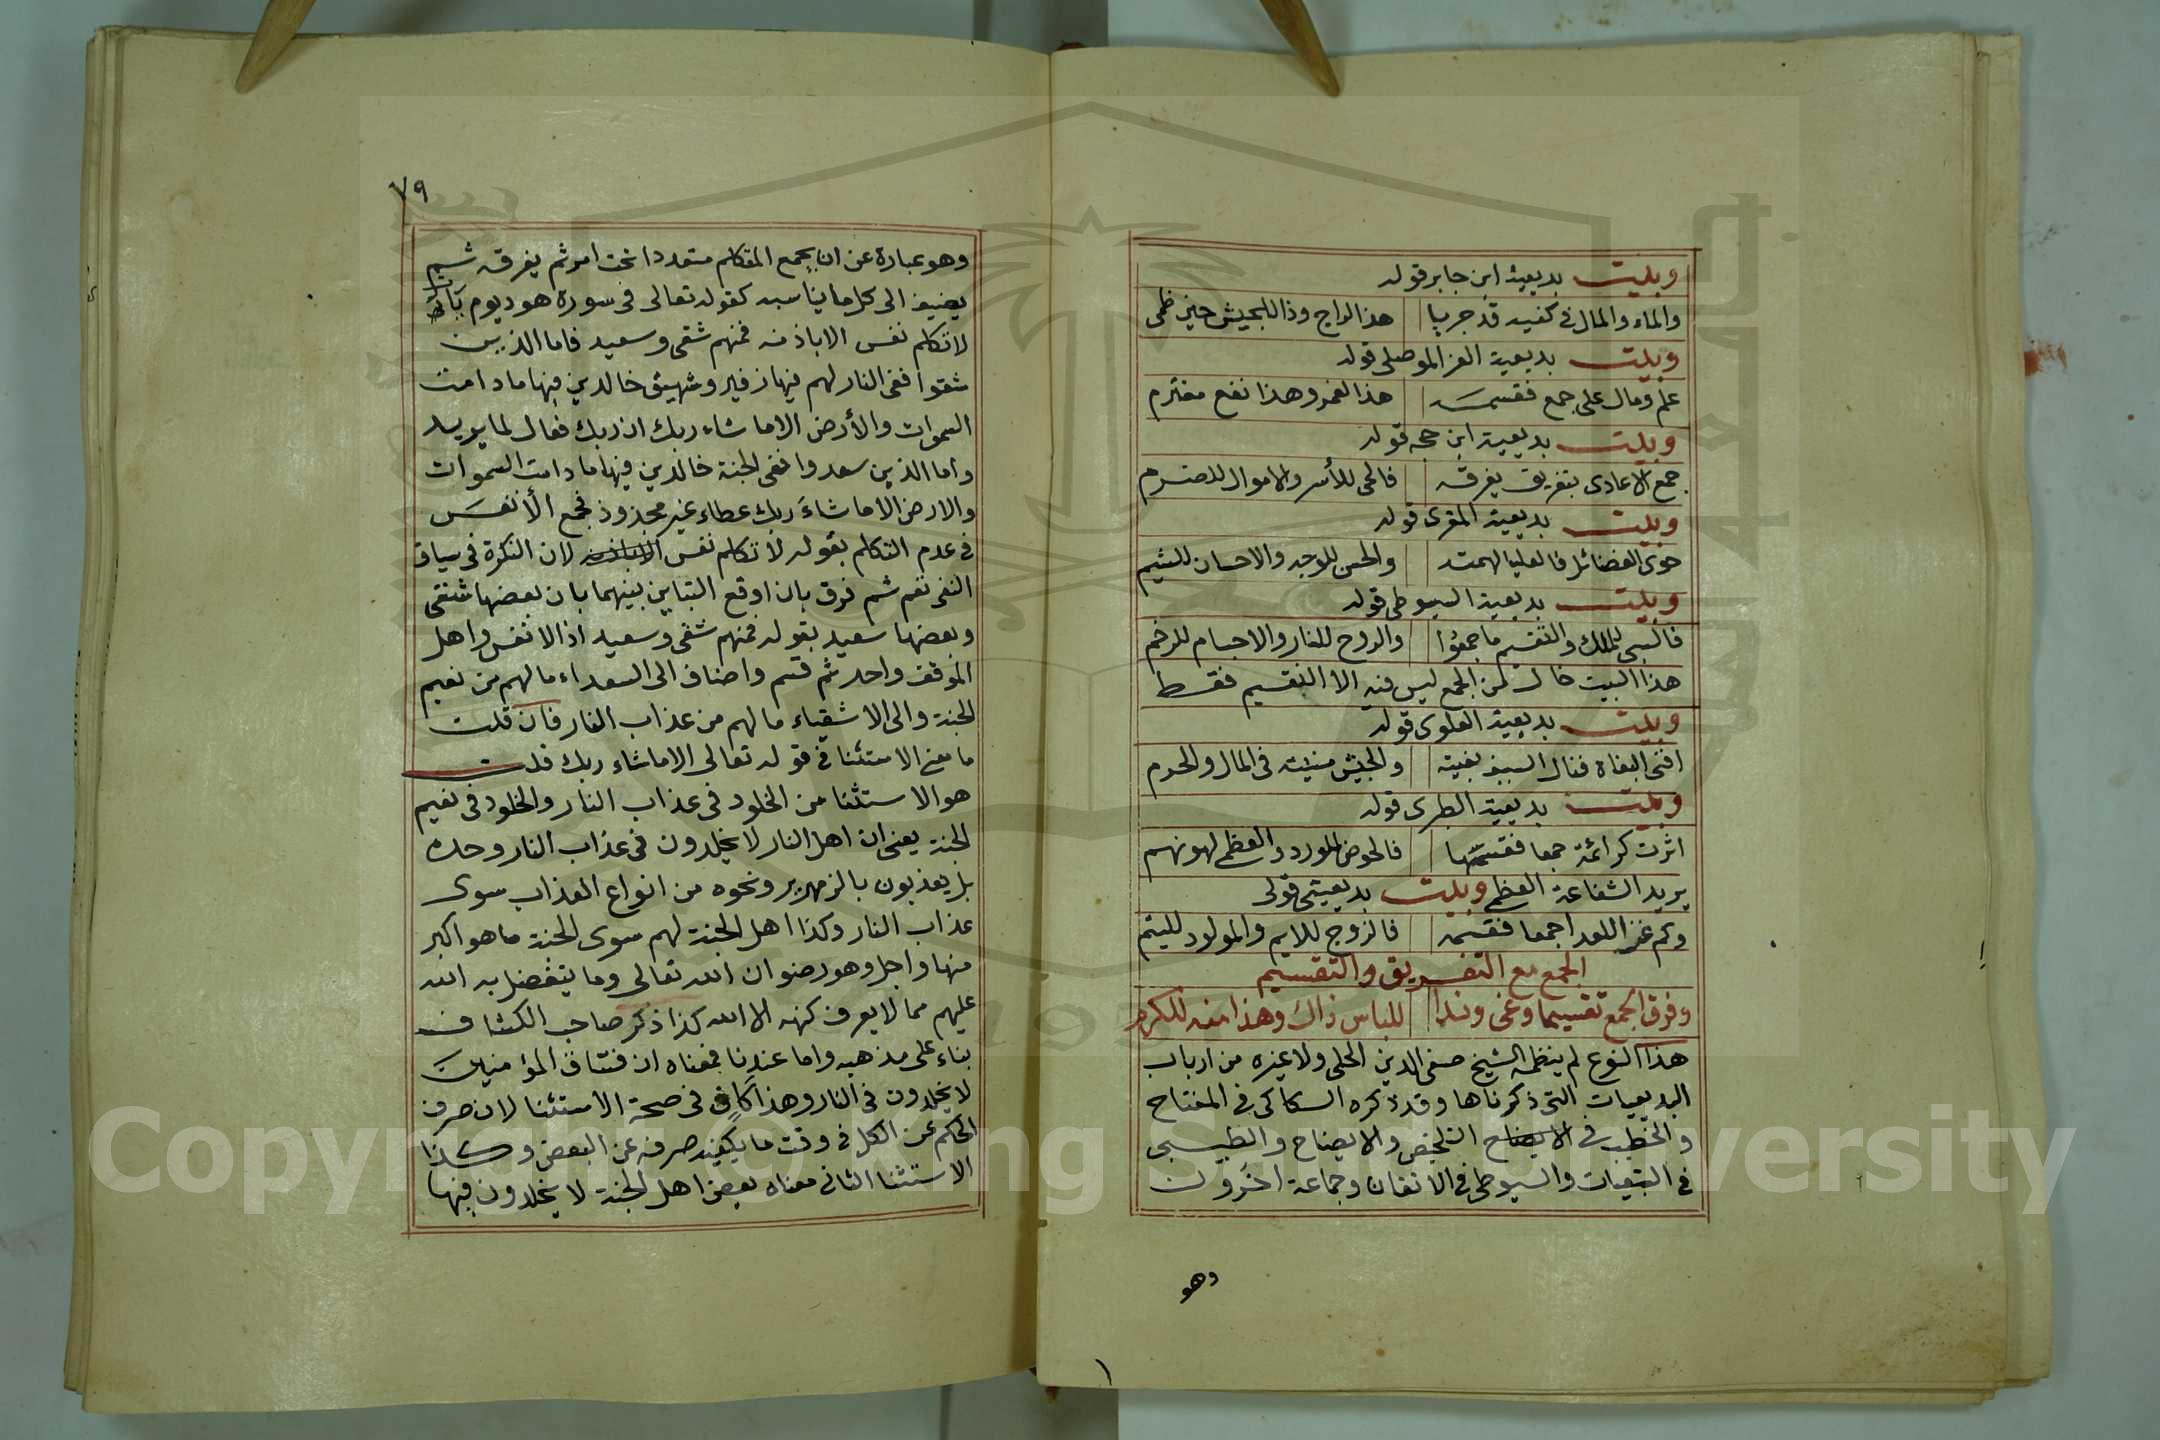 وبيت بديعية ابن جابر قوله
والماء والمال في كفيه قد جريا هذا الراج وذا للجيش حين ظمى
وبيت بديعية العز الموصلي قوله
علم ومال على جمع فقسمه هذا لغمر وهذا نفع مغترم
وبيت بديعية ابن حجه قوله
جمع الاعادى بتفريق يفرقه فالحى للأسر والاموال للضرم
وبيت بديعية المقرى قوله
حوى الفضائل فالعليا لهمته والحسن للوجه والاحسان للشيم
وبيت بديعية السيوطى قوله
فالسبى للملك والتقسيم ما جمعوا والروح للنار والاجسام للرخم
هذا البيت خال من الجمع ليس فيه الا التقسيم فقط
وبيت بديعية العلوى قوله
افنى البغاة فنال السيف بغيته والجيش منيته فى المال والحرم
وبيت بديعية الطبرى قوله
اثرت كرائمة جمعا فقسمتها فالحوض للورد والعظمى لهونهم
يريد الشفاعة العظمى وبيت بديعيتى قولى
وكم غزا للعدا جمعا فقسمه فالزوج للايم والمولود لليتم
الجمع مع التفريق والتقسيم
وفرق الجمع تقسيما وغى وندا للناس ذاك وهذا منه للكرم
هذا النوع لم ينظمه الشيخ صفى الدين الحلى ولا غيره من ارباب
البديعيات التى ذكرناها وقد ذكره السكاكى فى المفتاح
والخطيب فى الايضاح التلخيص والايضاح والطيبى
فى التبيان والسيوطى فى الاتقان وجماعة اخرون
وهو
٧٩
وهو عبارة عن ان يجمع المتكلم متعددا تحت امر ثم يفرقه ثم
يضيف الى كل ما يناسبه كقوله تعالى فى سورة هود يوم يأت
لا تكلم نفس الا باذنه فمنهم شقى وسعيد فاما الذين
شقوا ففى النار لهم فيها زفير وشهيق خالدين فيها ما دامت
السموات والأرض الا ما شاء ربك ان ربك فعال لما يريد
واما الذين سعدوا ففى الجنة خالدين فيها ما دامت السموات
والارض الا ما شاءَ ربك عطاء غير مجذوذ فجمع الأنفسَ
فى عدم التكلم بقوله لا تكلم نفس الا باذنه لان النكرة فى سياق
النفى تعم ثم فرق بان اوقع التباين بينهما بان بعضها شقى
وبعضها سعيد بقوله فمنهم شقى وسعيد اذ الانفس واهل
الموقف واحد ثم قسم واضاف الى السعداء ما لهم من نعيم
الجنة والى الاشقياء ما لهم من عذاب النار فان قلت
ما معنى الاستثنا فى قوله تعالى الا ما شاء ربك قلت
هو الاستثنا من الخلود فى عذاب النار والخلود فى نعيم
الجنة يعنى ان اهل النار لا يخلدون فى عذاب النار وحده
بل يعذبون بالزمهرير ونحوه من انواع العذاب سوى
عذاب النار وكذا اهل الجنة لهم سوى الجنة ما هو اكبر
منها واجل وهو رضوان الله تعالى وما يتفضل به الله
عليهم مما لا يعرف كنهه الا الله كذا ذكر صاحب الكشاف
بناء على مذهبه واما عندنا فمعناه ان فساق المؤمنينَ
لا يخلدون فى النار وهذا كاف فى صحة الاستثنا لان صرف
الحكم عن الكل فى وقت ما يكفيه صرفه عن البعض وكذا
الاستثنا الثانى معناه بعض اهل الجنة لا يخلدون فيها
Copyright © King Saud University